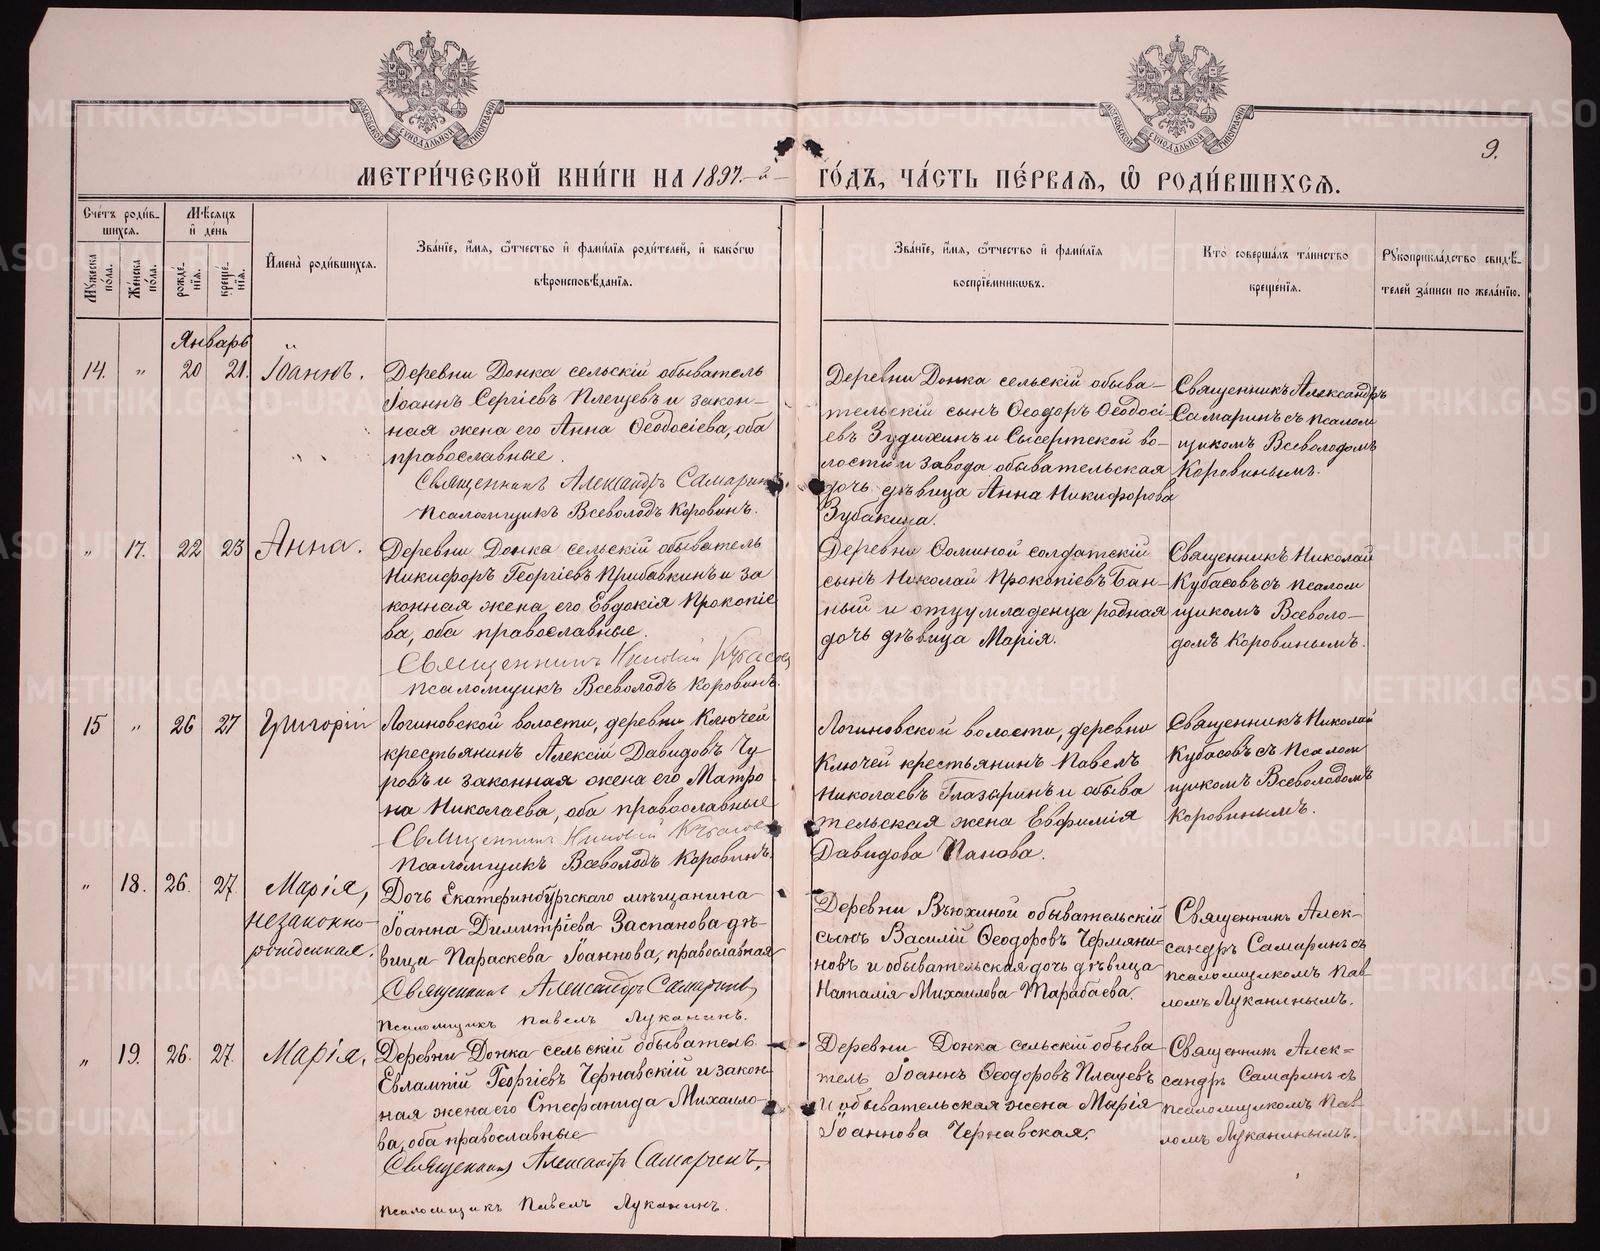 9.
МЕТРИ́ЧЕСКОЙ КНИ́ГИ НА 1897-й ГО́ДЪ, ЧА́СТЬ ПЕ́РВАЯ, Ѽ РОДИ́ВШИХСЯ.
Сче́тъ роди́в-
шихся.
Мꙋжеска по́ла.
Же́нска по́ла.
Мѣ́сяцъ
и҆ де́нь
рожде́-
нїя.
креще́-
нїя.
И҆мена̀ роди́вшихся.
Зва́нїе, и҆́мя, ѻ҆́тчество и҆ фами́лїя роди́телей, и҆ како́гѡ
вѣроисповѣ́данїя.
Зва́нїе, и҆́мя, ѻ҆́тчество и҆ фами́лїя
воспрїе́мникѡвъ.
Кто̀ соверша́лъ та́инство
креще́нїя.
Рꙋкоприкла́дство свидѣ́-
телей за́писи по жела́нїю.
Январь
14. " 20 21. Іоаннъ.
Деревни Донка сельскій обыватель
Іоаннъ Сергіевъ Плещевъ и закон-
ная жена его Анна Ѳеодосіева, оба
православные.
Священникъ Александръ Самаринъ
Псаломщикъ Всеволодъ Коровинъ.
Деревни Донка сельскій обыва-
тельскій сынъ Ѳеодоръ Ѳеодосі-
евъ Зудихинъ и Сысертской во-
лости и завода обывательская
дочь дѣвица Анна Никифорова
Зубакина.
Священникъ Александръ
Самаринъ съ псалом
щикомъ Всеволодомъ
Коровинымъ.
" 17. 22 23 Анна.
Деревни Донка сельскій обыватель
Никифоръ Георгіевъ Прибавкинъ и за
конная жена его Евдокія Прокопіе
ва, оба православные.
Священникъ Николай Кубасовъ
Псаломщикъ Всеволодъ Коровинъ.
Деревни Ѳоминой солдатскій
сынъ Николай Прокопіевъ Бан-
ный и отцу младенца родная
дочь дѣвица Марія.
Священникъ Николай
Кубасовъ съ псалом
щикомъ Всеволо-
домъ Коровинымъ.
15 " 26 27 Григорій
Логиновской волости, деревни Ключей
крестьянинъ Алексій Давидовъ Чу
ровъ и законная жена его Матро
на Николаева, оба православные
Священникъ Николай Кубасовъ
Псаломщикъ Всеволодъ Коровинъ.
Логиновской волости, деревни
Ключей крестьянинъ Павелъ
Николаевъ Глазыринъ и обыва
тельская жена Евфимія
Давидова Панова.
Священникъ Николай
Кубасовъ съ псалом
щикомъ Всеволодомъ
Коровинымъ.
" 18. 26. 27. Марія,
незаконно-
рожденная.
Дочь Екатеринбургскаго мѣщанина
Іоанна Димитріева Заспанова дѣ-
вица Параскева Іоаннова, православная
Священникъ Александръ Самаринъ,
псаломщикъ Павелъ Луканинъ.
Деревни Вьюхиной обывательскій
сынъ Василій Ѳеодоровъ Чермяни-
новъ и обывательская дочь дѣвица
Наталія Михаилова Тарабаева.
Священникъ Алек-
сандръ Самаринъ съ
псаломщикомъ Пав-
ломъ Луканинымъ.
" 19. 26. 27. Марія,
Деревни Донка сельскій обыватель
Евлампій Георгіевъ Чернавскій и закон-
ная жена его Стефанида Михаило-
ва, оба православные
Священникъ Александръ Самаринъ,
псаломщикъ Павелъ Луканинъ.
Деревни Донка сельскій обыва
тель Іоаннъ Ѳеодоровъ Плещевъ
и обывательская жена Марія
Іоаннова Чернавская.
Священникъ Алек-
сандръ Самаринъ съ
псаломщикомъ Пав-
ломъ Луканинымъ.
METRIKI.GASO-URAL.RU